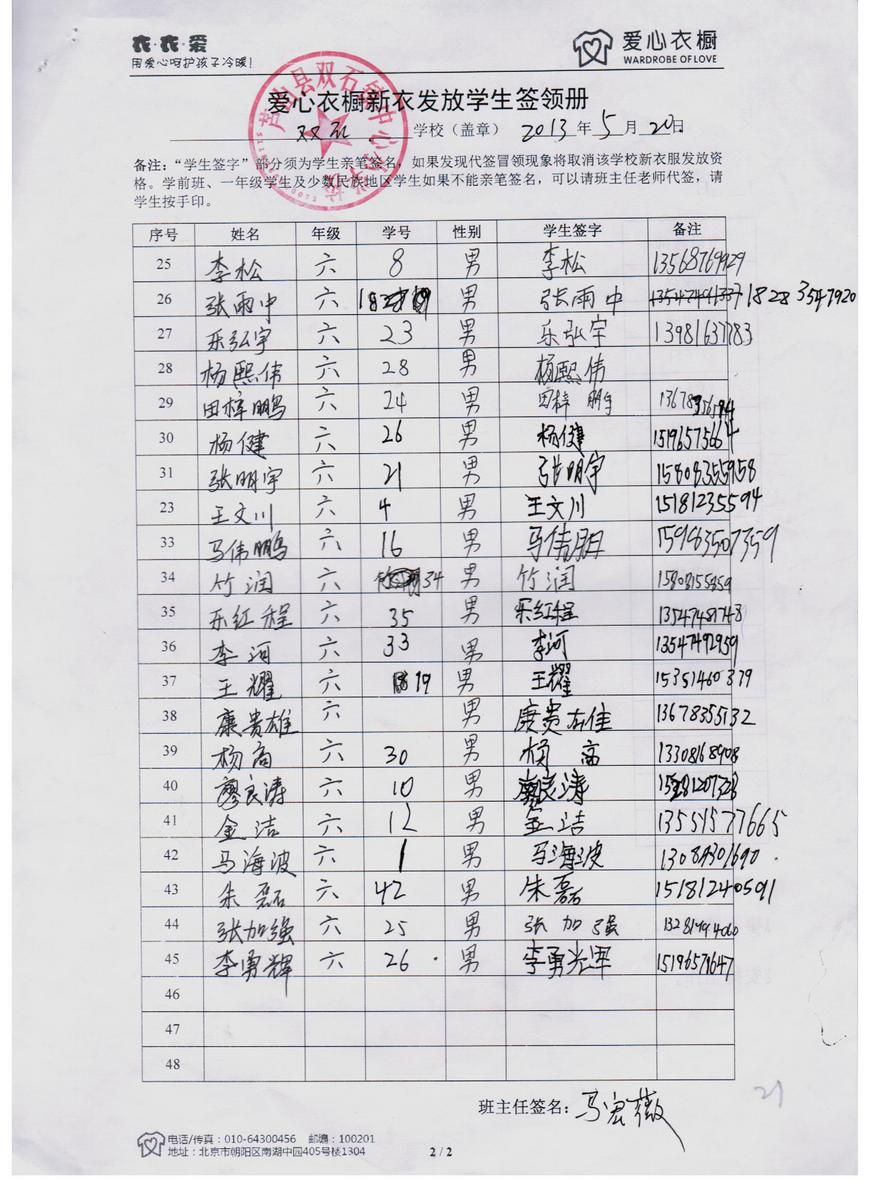 衣·衣·爱
用爱心呵护孩子冷暖!
爱心衣橱
WARDROBE OF LOVE
爱心衣橱新衣发放学生签领册
双石 学校（盖章） 2013 年 5 月 20 日
备注：“学生签字”部分须为学生亲笔签名，如果发现代签冒领现象将取消该学校新衣服发放资
格。学前班、一年级学生及少数民族地区学生如果不能亲笔签名，可以请班主任老师代签，请
学生按手印。
序号 姓名 年级 学号 性别 学生签字 备注
25 李松 六 8 男 李松 13568769929
26 张雨中 六 男 张雨中 18283547920
27 乐弘宇 六 23 男 乐弘宇 13981637783
28 杨熙伟 六 28 男 杨熙伟
29 田梓鹏 六 24 男 田梓鹏
30 杨健 六 26 男 杨健 15196575664
31 张明宇 六 21 男 张明宇 15808355958
23 王文川 六 4 男 王文川 15181235594
33 马伟鹏 六 16 男 马伟朋 15983507359
34 竹润 六 34 男 竹润 15808155859
35 乐红程 六 35 男 乐红程 13547487748
36 李河 六 33 男 李河 13547492959
37 王耀 六 19 男 王耀 15351460379
38 康贵雄 六 男 康贵雄 13678355132
39 杨高 六 30 男 杨高 13308168908
40 廖良涛 六 10 男 廖良涛
41 金洁 六 12 男 金洁 13551577665
42 马海波 六 1 男 马海波
43 朱磊 六 42 男 朱磊 15181240591
44 张加强 六 25 男 张加强
45 李勇辉 六 26 男 李勇辉 15196571647
46
47
48
班主任签名：马宏薇
21
电话/传真：010-64300456 邮编：100201
地址：北京市朝阳区南湖中园405号楼1304
2 / 2